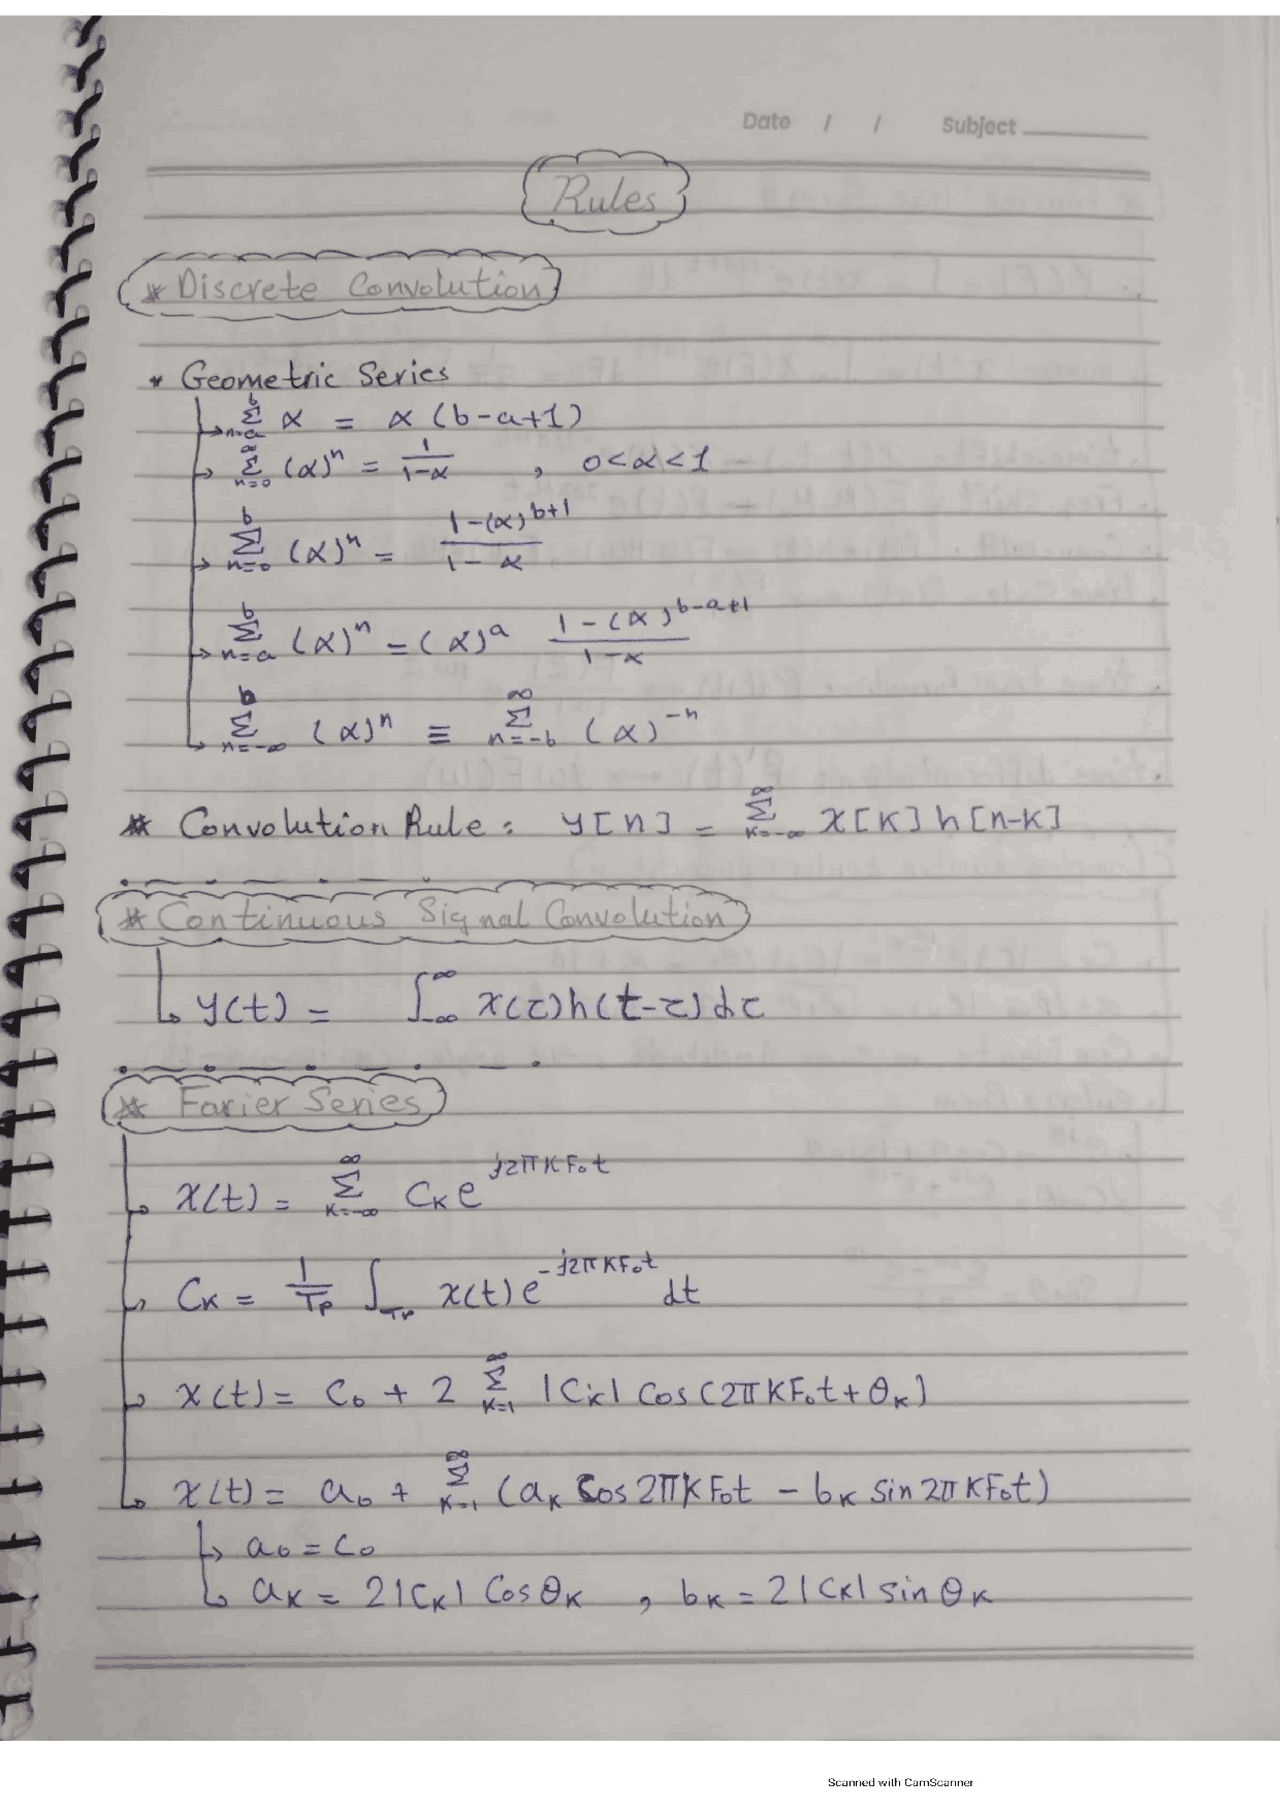 Date / / Subject
Rules
* Discrete Convolution
* Geometric Series
∑_{n=a}^{b} α = α (b-a+1)
∑_{n=0}^{∞} (α)^n = 1/(1-α) , 0<α<1
∑_{n=0}^{b} (α)^n = (1-(α)^{b+1})/(1-α)
∑_{n=a}^{b} (α)^n = (α)^a (1-(α)^{b-a+1})/(1-α)
∑_{n=-∞}^{b} (α)^n ≡ ∑_{n=-b}^{∞} (α)^{-n}
* Convolution Rule: y[n] = ∑_{K=-∞}^{∞} x[K] h[n-K]
* Continuous Signal Convolution
y(t) = ∫_{-∞}^{∞} x(τ)h(t-τ)dτ
* Farier Series
x(t) = ∑_{K=-∞}^{∞} C_K e^{j2πKF₀t}
C_K = 1/T_P ∫_{T_P} x(t) e^{-j2πKF₀t} dt
x(t) = C₀ + 2 ∑_{K=1}^{∞} |C_K| Cos(2πKF₀t+θ_K)
x(t) = a₀ + ∑_{K=1}^{∞} (a_K Cos2πKF₀t - b_K sin2πKF₀t)
a₀ = C₀
a_K = 2|C_K| Cosθ_K , b_K = 2|C_K| sinθ_K
Scanned with CamScanner